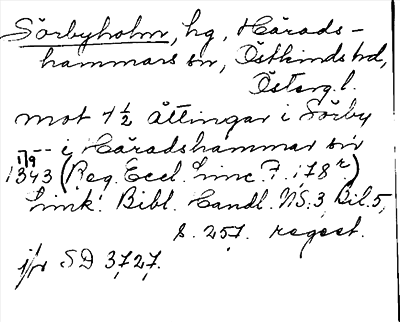 Sörbyholm, hg, Härads-
hammars sn, Östkinds hd,
Österg. l.
mot 1½ åttingar i Sörby
--- i Häradshammar sn
17/9 1343 (Reg. Eccl. Linc. F. 178r)
Link. Bibl. Handl. NS. 3 Bil. 5,
s. 257. regest.
jfr SD 3727.